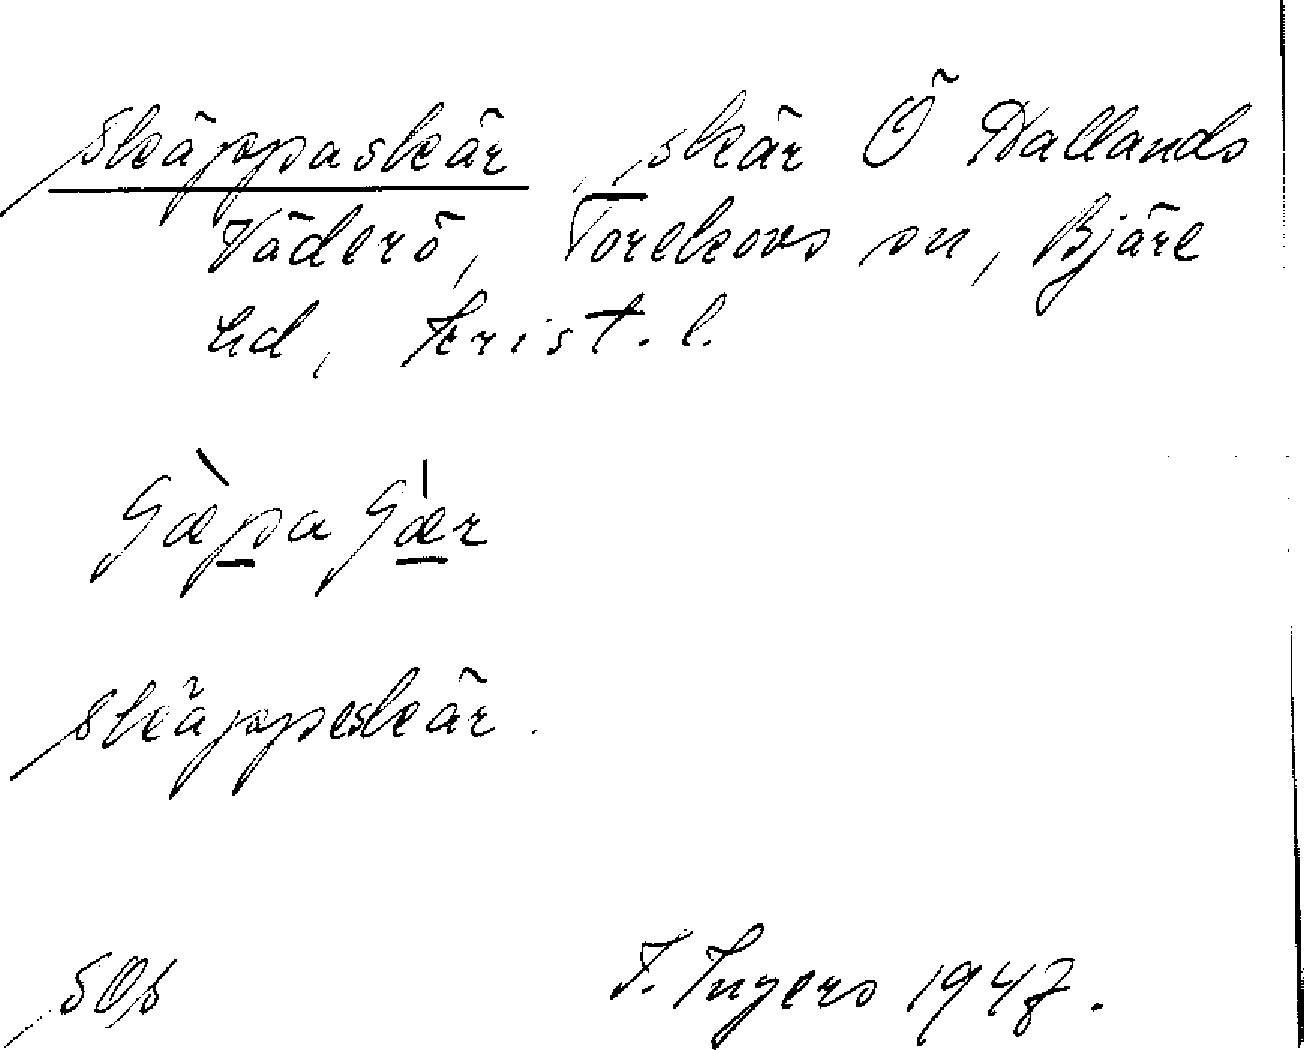 Skäppaskär skär Ö Hallands
Väderö, Torekovs sn, Bjäre
hd, Krist. l.
skäppeskär.
I. Ingers 1947.